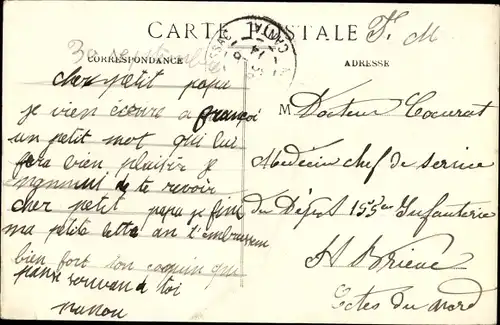 CARTE POSTALE
F. M
30 septembre
CORRESPONDANCE
ADRESSE
cher petit papa
je vien écrire a françoi
un petit mot qui lui
fera bien plaisir je
de te revoir
cher petit papa je fini
ma petite lettre an t'embrassem
bien fort ton coquin qui
panse souvan de toi
nanou
M Docteur Coeurat
Médecin chef de service
du Dépôt 155e Infanterie
St Brieuc
Cotes du Nord
CANTAL